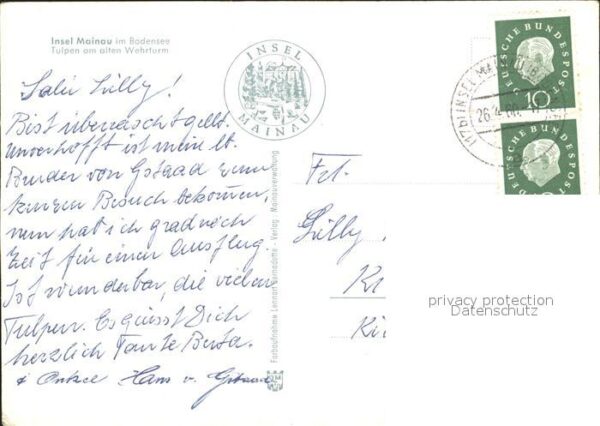 Insel Mainau im Bodensee
Tulpen am alten Wehrturm
INSEL
MAINAU
DEUTSCHE BUNDESPOST
10
DEUTSCHE BUNDESPOST
(17b) INSEL MAINAU
26.4.60
Salü Lilly!
Bist überrascht gellt.
Unverhofft ist mein lb.
Bruder von Gstaad zum
kurzen Besuch bekommen,
nun hat ich grad noch
Zeit für einen Ausflug.
Ist wunderbar, die vielen
Tulpen. Es grüsst Dich
herzlich Tante Berta.
& Onkel Hans v. Gstaad
Farbaufnahme Lennart Bernadotte - Verlag: Mainauverwaltung
Lilly
K
Ki
privacy protection
Datenschutz